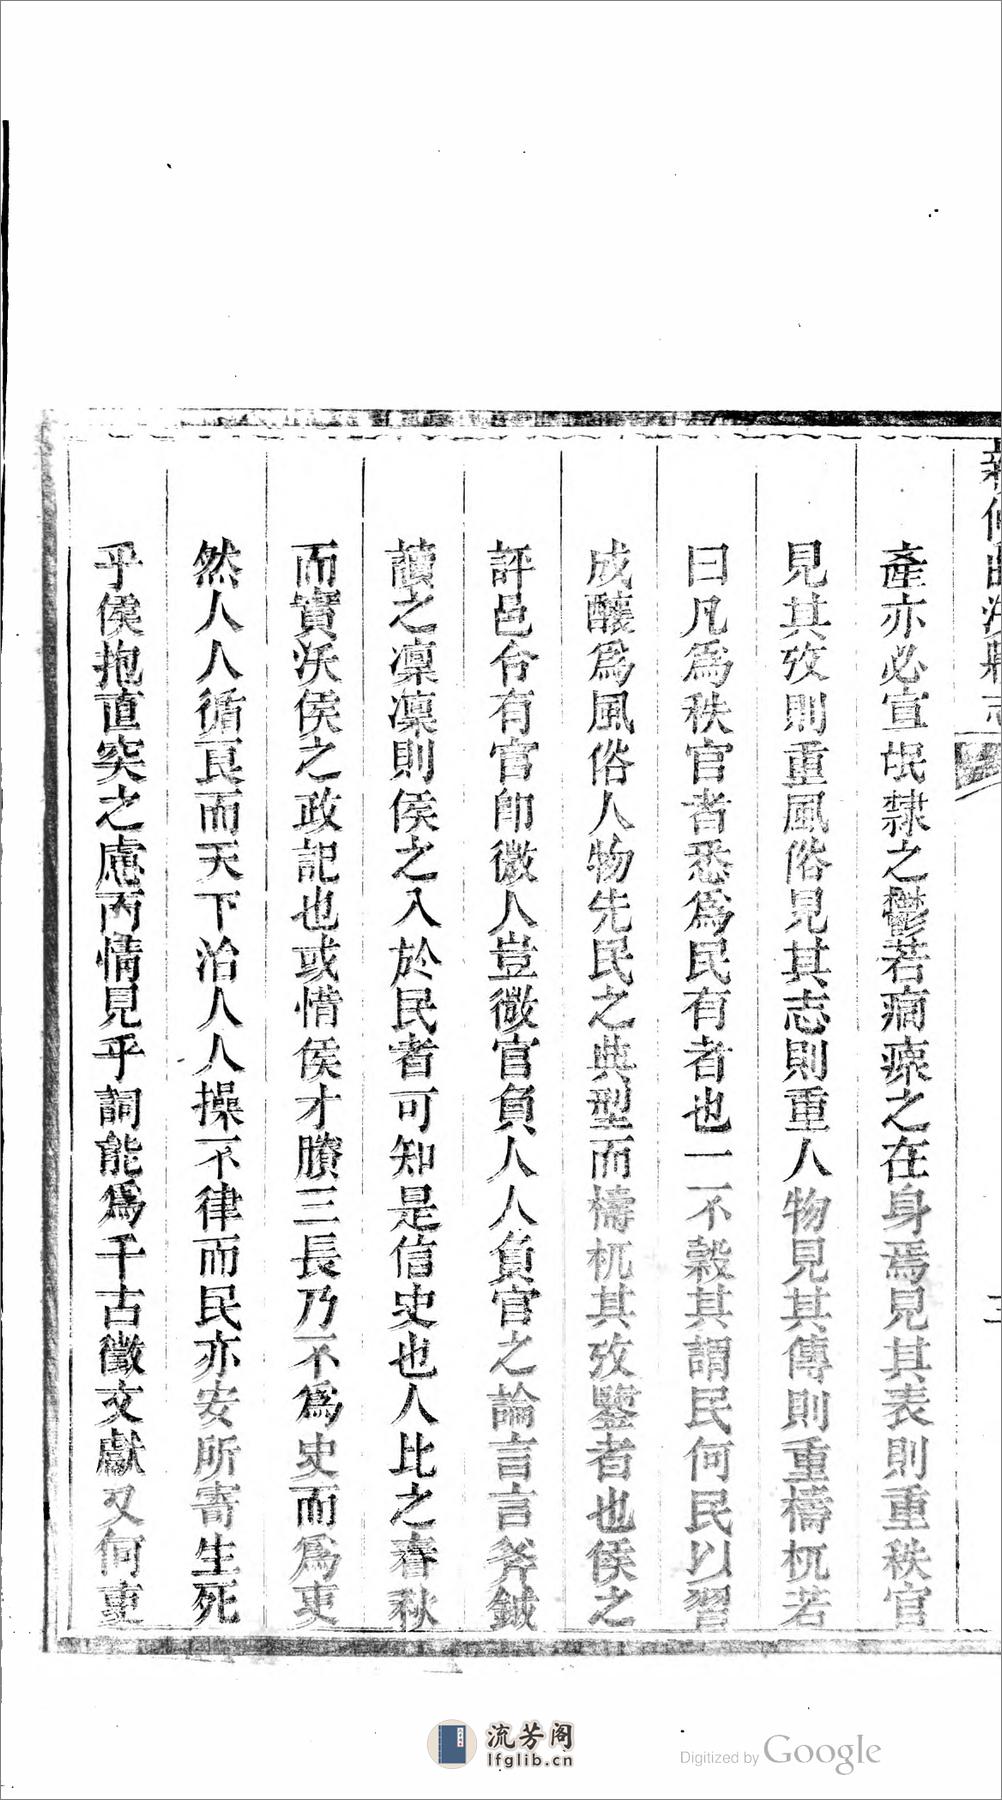 產亦必宣氓隸之鬱若痌瘝之在身焉見其表則重秩官
見其攷則重風俗見其志則重人物見其傳則重檮杌若
曰凡爲秩官者悉爲民有者也一不穀其謂民何民以習
成釀爲風俗人物先民之典型而檮杌其攷鑒者也侯之
評邑令有官卽微人豈微官負人人負官之論言言斧鉞
讀之凜凜則侯之入於民者可知是信史也人比之春秋
而實沃侯之政記也或惜侯才贖三長乃不爲史而爲吏
然人人循良而天下治人人操不律而民亦安所寄生死
乎侯抱直突之慮丙情見乎詞能爲千古徵文獻又何吏
流芳阁
lfglib.cn
Digitized by Google